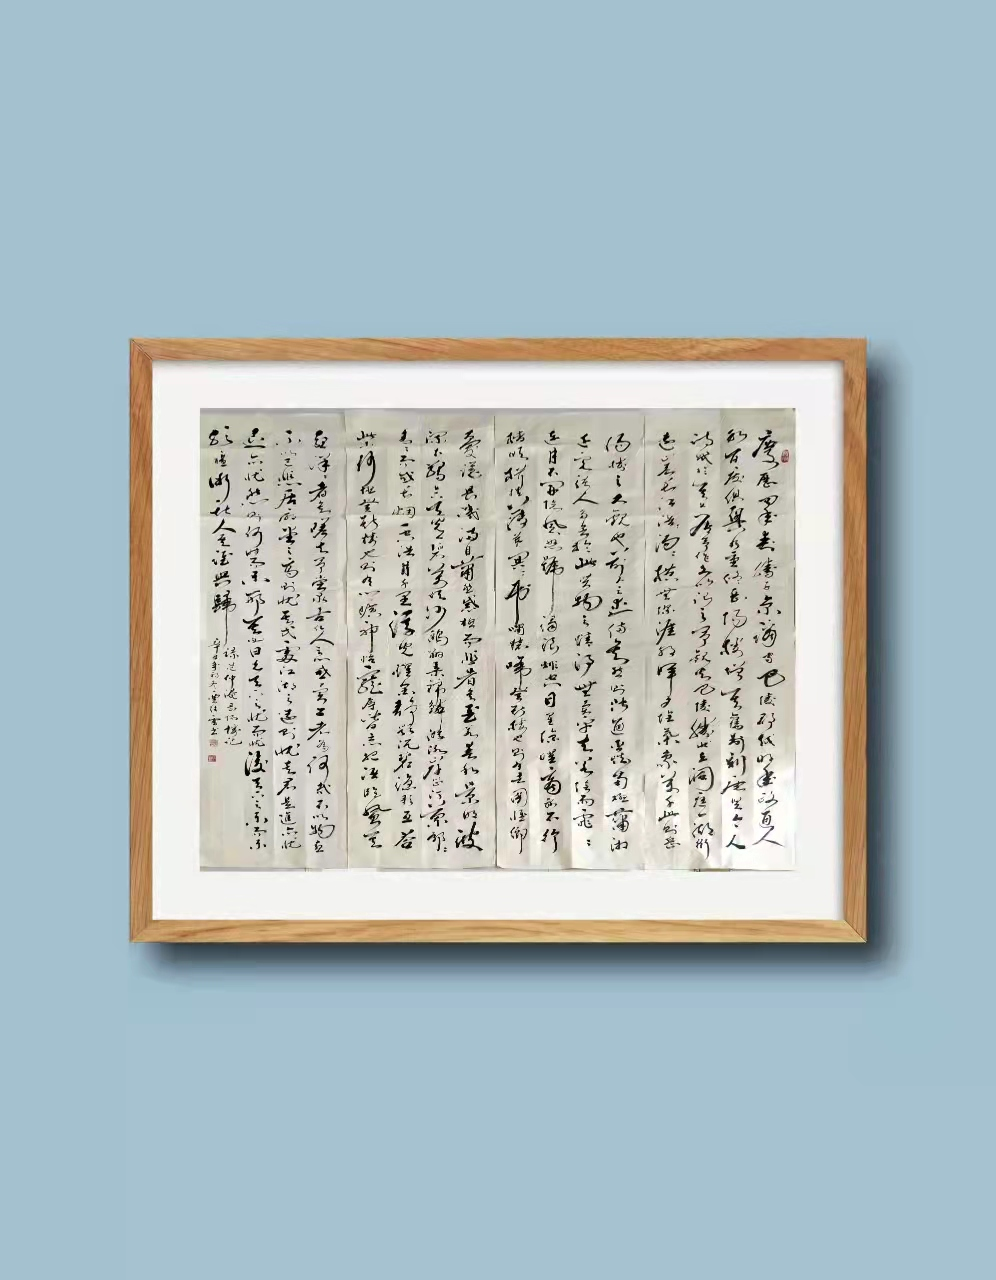 慶曆四年春滕子京謫守巴陵郡越明年政通人
和百廢俱興乃重修岳陽樓增其舊制刻唐賢今人
詩賦於其上屬予作文以記之予觀夫巴陵勝狀在洞庭一湖銜
遠山吞長江浩浩湯湯橫無際涯朝暉夕陰氣象萬千此則岳
陽樓之大觀也前人之述備矣然則北通巫峽南極瀟湘
遷客騷人多會於此覽物之情得無異乎若夫淫雨霏霏
連月不開陰風怒號濁浪排空日星隱曜商旅不行
檣傾楫摧薄暮冥冥虎嘯猿啼登斯樓也則有去國懷鄉
憂讒畏譏滿目蕭然感極而悲者矣至若春和景明波
瀾不驚上下天光一碧萬頃沙鷗翔集錦鱗游泳岸芷汀蘭郁郁
青青而或長煙一空皓月千里浮光躍金靜影沉璧漁歌互答
此樂何極登斯樓也則有心曠神怡寵辱皆忘把酒臨風其
喜洋洋者矣嗟夫予嘗求古仁人之心或異二者之為何哉不以物喜
不以己悲居廟堂之高則憂其民處江湖之遠則憂其君是進亦憂
退亦憂然則何時而樂耶其必曰先天下之憂而憂後天下之樂而樂
歟噫微斯人吾誰與歸
錄范仲淹岳陽樓記
辛丑年初冬